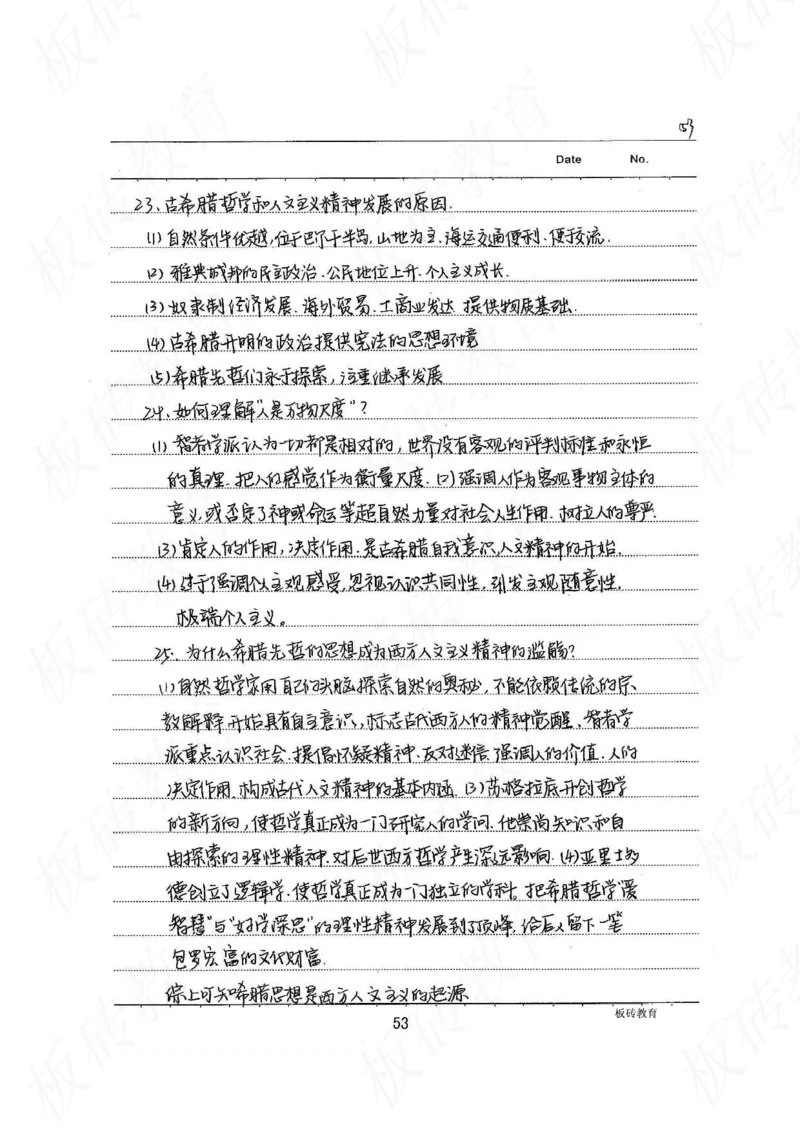 53
Date No.
23、古希腊哲学和人文主义精神发展的原因.
(1) 自然条件优越,位于巴尔干半岛,山地为主,海运交通便利.便于交流.
(2) 雅典城邦的民主政治.公民地位上升.个人主义成长.
(3) 奴隶制经济发展、海外贸易、工商业发达 提供物质基础.
(4) 古希腊开明的政治提供宪法的思想环境
(5) 希腊先哲们永于探索,注重继承发展
24、如何理解"人是万物尺度"?
(1) 智者学派认为一切都是相对的,世界没有客观的评判标准和永恒
的真理.把人的感觉作为衡量尺度. (2) 强调人作为客观事物主体的
意义,或否定了神或命运等超自然力量对社会人生作用.树立人的尊严.
(3) 肯定人的作用,决定作用.是古希腊自我意识,人文精神的开始.
(4) 过于强调个人主观感受,忽视认识共同性,引发主观随意性,
极端个人主义。
25、为什么希腊先哲的思想成为西方人文主义精神的滥觞?
(1) 自然哲学家用自己的头脑探索自然的奥秘,不能依赖传统的宗
教解释.开始具有自主意识,标志古代西方人的精神觉醒、智者学
派重点认识社会.提倡怀疑精神.反对迷信.强调人的价值.人的
决定作用.构成古代人文精神的基本内涵. (3) 苏格拉底开创哲学
的新方向,使哲学真正成为一门研究人的学问.他崇尚知识和自
由探索的理性精神.对后世西方哲学产生深远影响. (4) 亚里士多
德创立了逻辑学.使哲学真正成为一门独立的学科.把希腊哲学"爱
智慧"与"好学深思"的理性精神发展到了顶峰.给后人留下一笔
包罗宏富的文化财富.
综上可知希腊思想是西方人文主义的起源
53
板砖教育